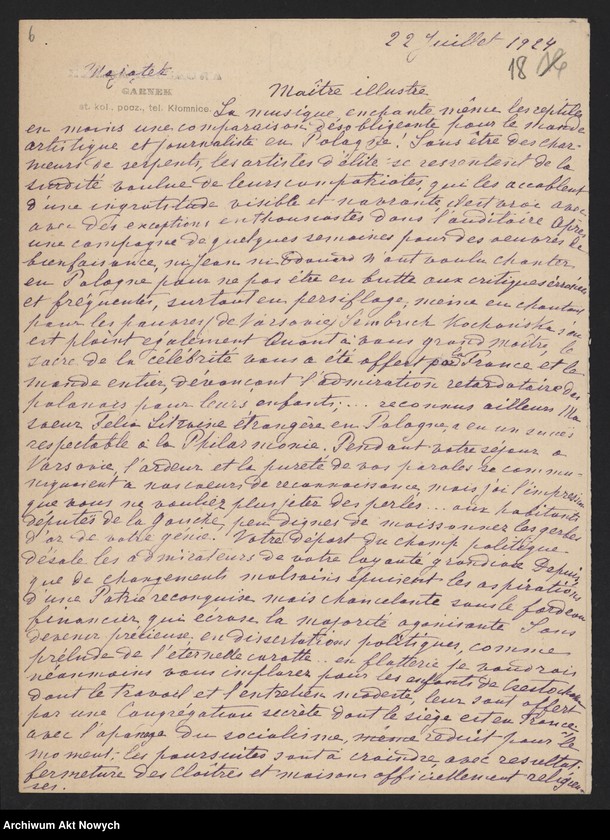 6
22 Juillet 1924
18
Majątek
GARNEK
st. kol., pocz., tel. Kłomnice.
Maître illustre
La musique enchante même les reptiles
en moins une comparaison désobligeante pour le monde
artistique et journaliste en Pologne! Sans être des char-
meurs de serpents, les artistes d'élite se ressentent de la
surdité voulue de leurs compatriotes, qui les accablent
d'une ingratitude visible et navrante, c'est vrai avec
avec des exceptions enthousiastes dans l'auditoire Après
une campagne de quelques semaines pour des oeuvres de
bienfaisance, ni Jean ni Edouard n'ont voulu chanter
en Pologne pour ne pas être en butte aux critiques
et fréquentes, surtout en persiflage, même en chantant
pour les pauvres de Varsovie, Sembrich Kochańska s'en
est plaint également Quant à vous grand maître, le
sacre de la célébrité vous a été offert par la France et le
monde entier, devançant l'admiration retardataire des
polonais pour leurs enfants; ... reconnus ailleurs Ma
soeur Felia Litvinne étrangère en Pologne, a eu un succès
respectable à la Philarmonie. Pendant votre séjour à
Varsovie, l'ardeur et la pureté de vos paroles se commu-
niquaient à nos coeurs de reconnaissance mais j'ai l'impression
que vous ne vouliez plus jeter des perles ... aux habitants
députés de la Gauche, peu dignes de moissonner les gerbes
d'or de votre génie. Votre départ du champ politique
désole les admirateurs de votre loyauté grandiose Depuis
que de changements malsains épuisent les aspirations
d'une Patrie reconquise mais chancelante sous le fardeau
financier, qui écrase la majorité agonisante Sans
devenir précieuse, en dissertations politiques, comme
prélude de l'éternelle carotte .. en flatterie je voudrais
néanmoins vous implorer pour les enfants de Czestochowa
dont le travail et l'entretien modeste, leur sont offert
par une Congrégation secrète dont le siège est en France,
avec l'apanage du socialisme, même réduit pour le
moment; les poursuites sont à craindre avec resultat:
fermeture des cloîtres et maisons officiellement religieu-
ses.
Archiwum Akt Nowych